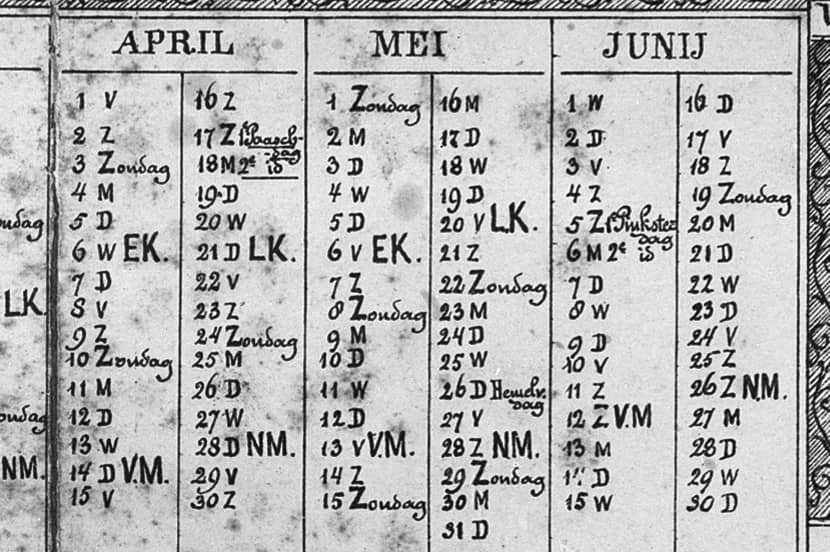 APRIL
1 V
2 Z
3 Zondag
4 M
5 D
6 W EK.
7 D
8 V
9 Z
10 Zondag
11 M
12 D
13 W
14 D V.M.
15 V
16 Z
17 Z 1e Paasch-
dag
18 M 2e id
19 D
20 W
21 D LK.
22 V
23 Z
24 Zondag
25 M
26 D
27 W
28 D NM.
29 V
30 Z
MEI
1 Zondag
2 M
3 D
4 W
5 D
6 V EK.
7 Z
8 Zondag
9 M
10 D
11 W
12 D
13 V V.M.
14 Z
15 Zondag
16 M
17 D
18 W
19 D
20 V L.K.
21 Z
22 Zondag
23 M
24 D
25 W
26 D Hemelv.
dag
27 V
28 Z NM.
29 Zondag
30 M
31 D
JUNIJ
1 W
2 D
3 V
4 Z
5 Z 1e Pinkster
dag
6 M 2e id
7 D
8 W
9 D
10 V
11 Z
12 Z V.M
13 M
14 D
15 W
16 D
17 V
18 Z
19 Zondag
20 M
21 D
22 W
23 D
24 V
25 Z
26 Z N.M.
27 M
28 D
29 W
30 D
LK.
NM.